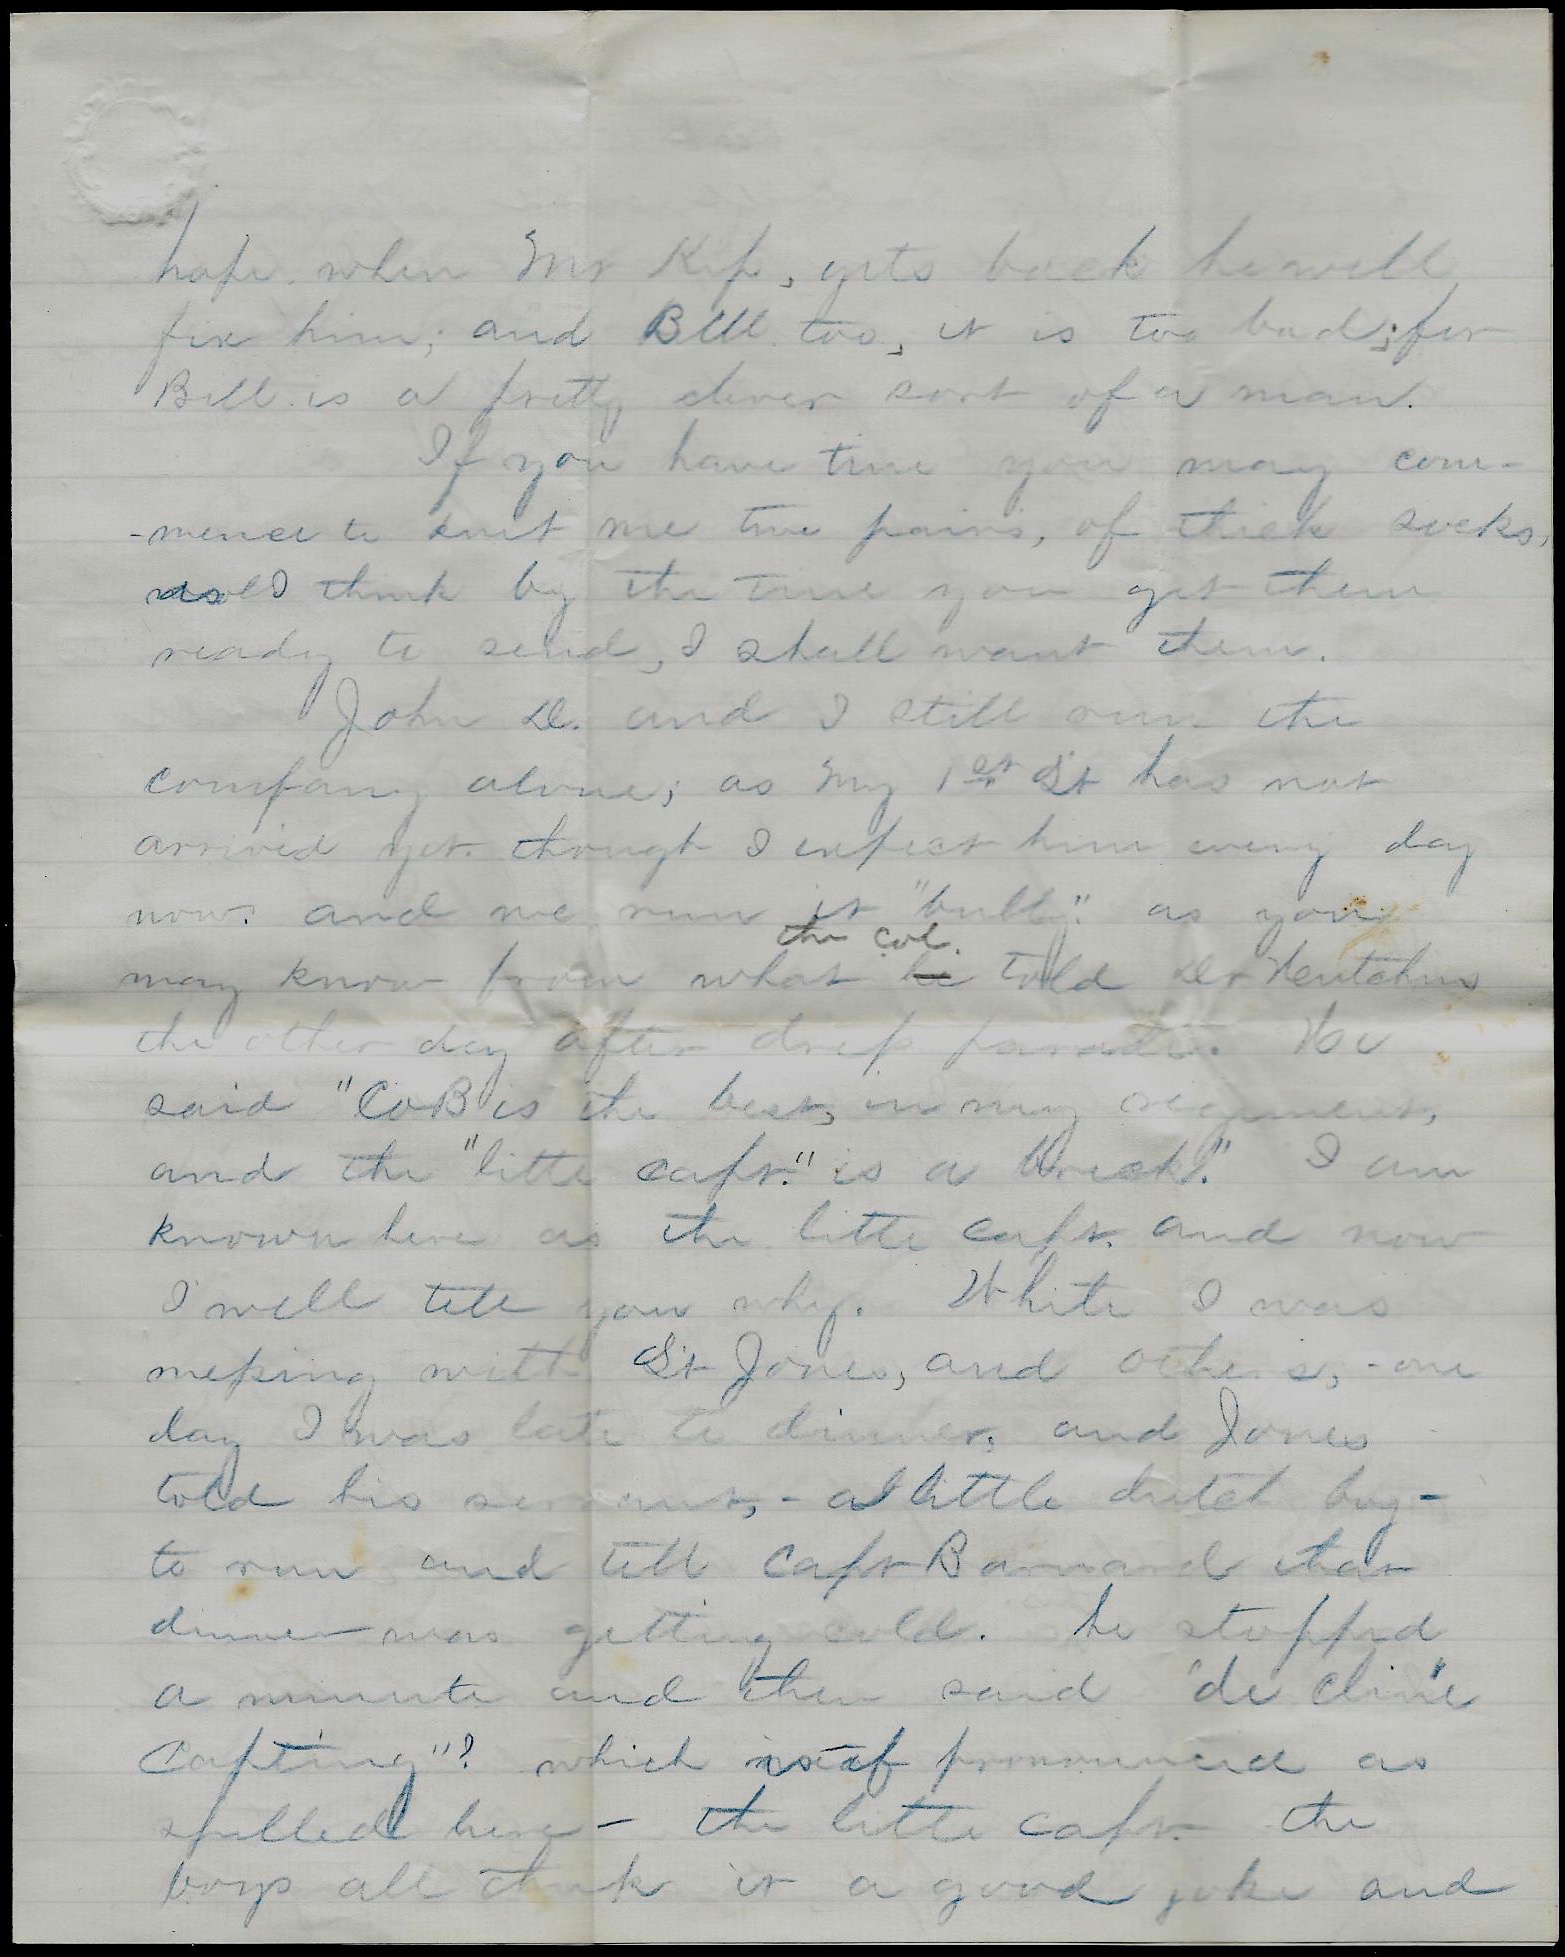 hope when Mr Kip, gets back he will
fix him; and Bill too, it is too bad; for
Bill is a pretty clever sort of a man.
If you have time you may com-
-mence to knit me two pairs, of thick socks,
as I think by the time you get them
ready to send, I shall want them.
John D. and I still run the
company alone; as my 1st Lt has not
arrived yet though I expect him every day
now. and we run it "bully." as you
the Col.
may know from what he told Dr
the other day after dress parade. He
said "Co B is the best, in my regiment,
and the "little capt." is a brick." I am
known here as the little capt. and now
I will tell you why. While I was
messing with Lt Jones, and others, - one
day I was late to dinner, and Jones
told his servant, - a little dutch boy -
to run and tell Capt Barnard that
dinner was getting cold. he stopped
a minute and then said "de cline
Capting"? which is pronounced as
spelled here - the little capt. the
boys all think it a good joke and